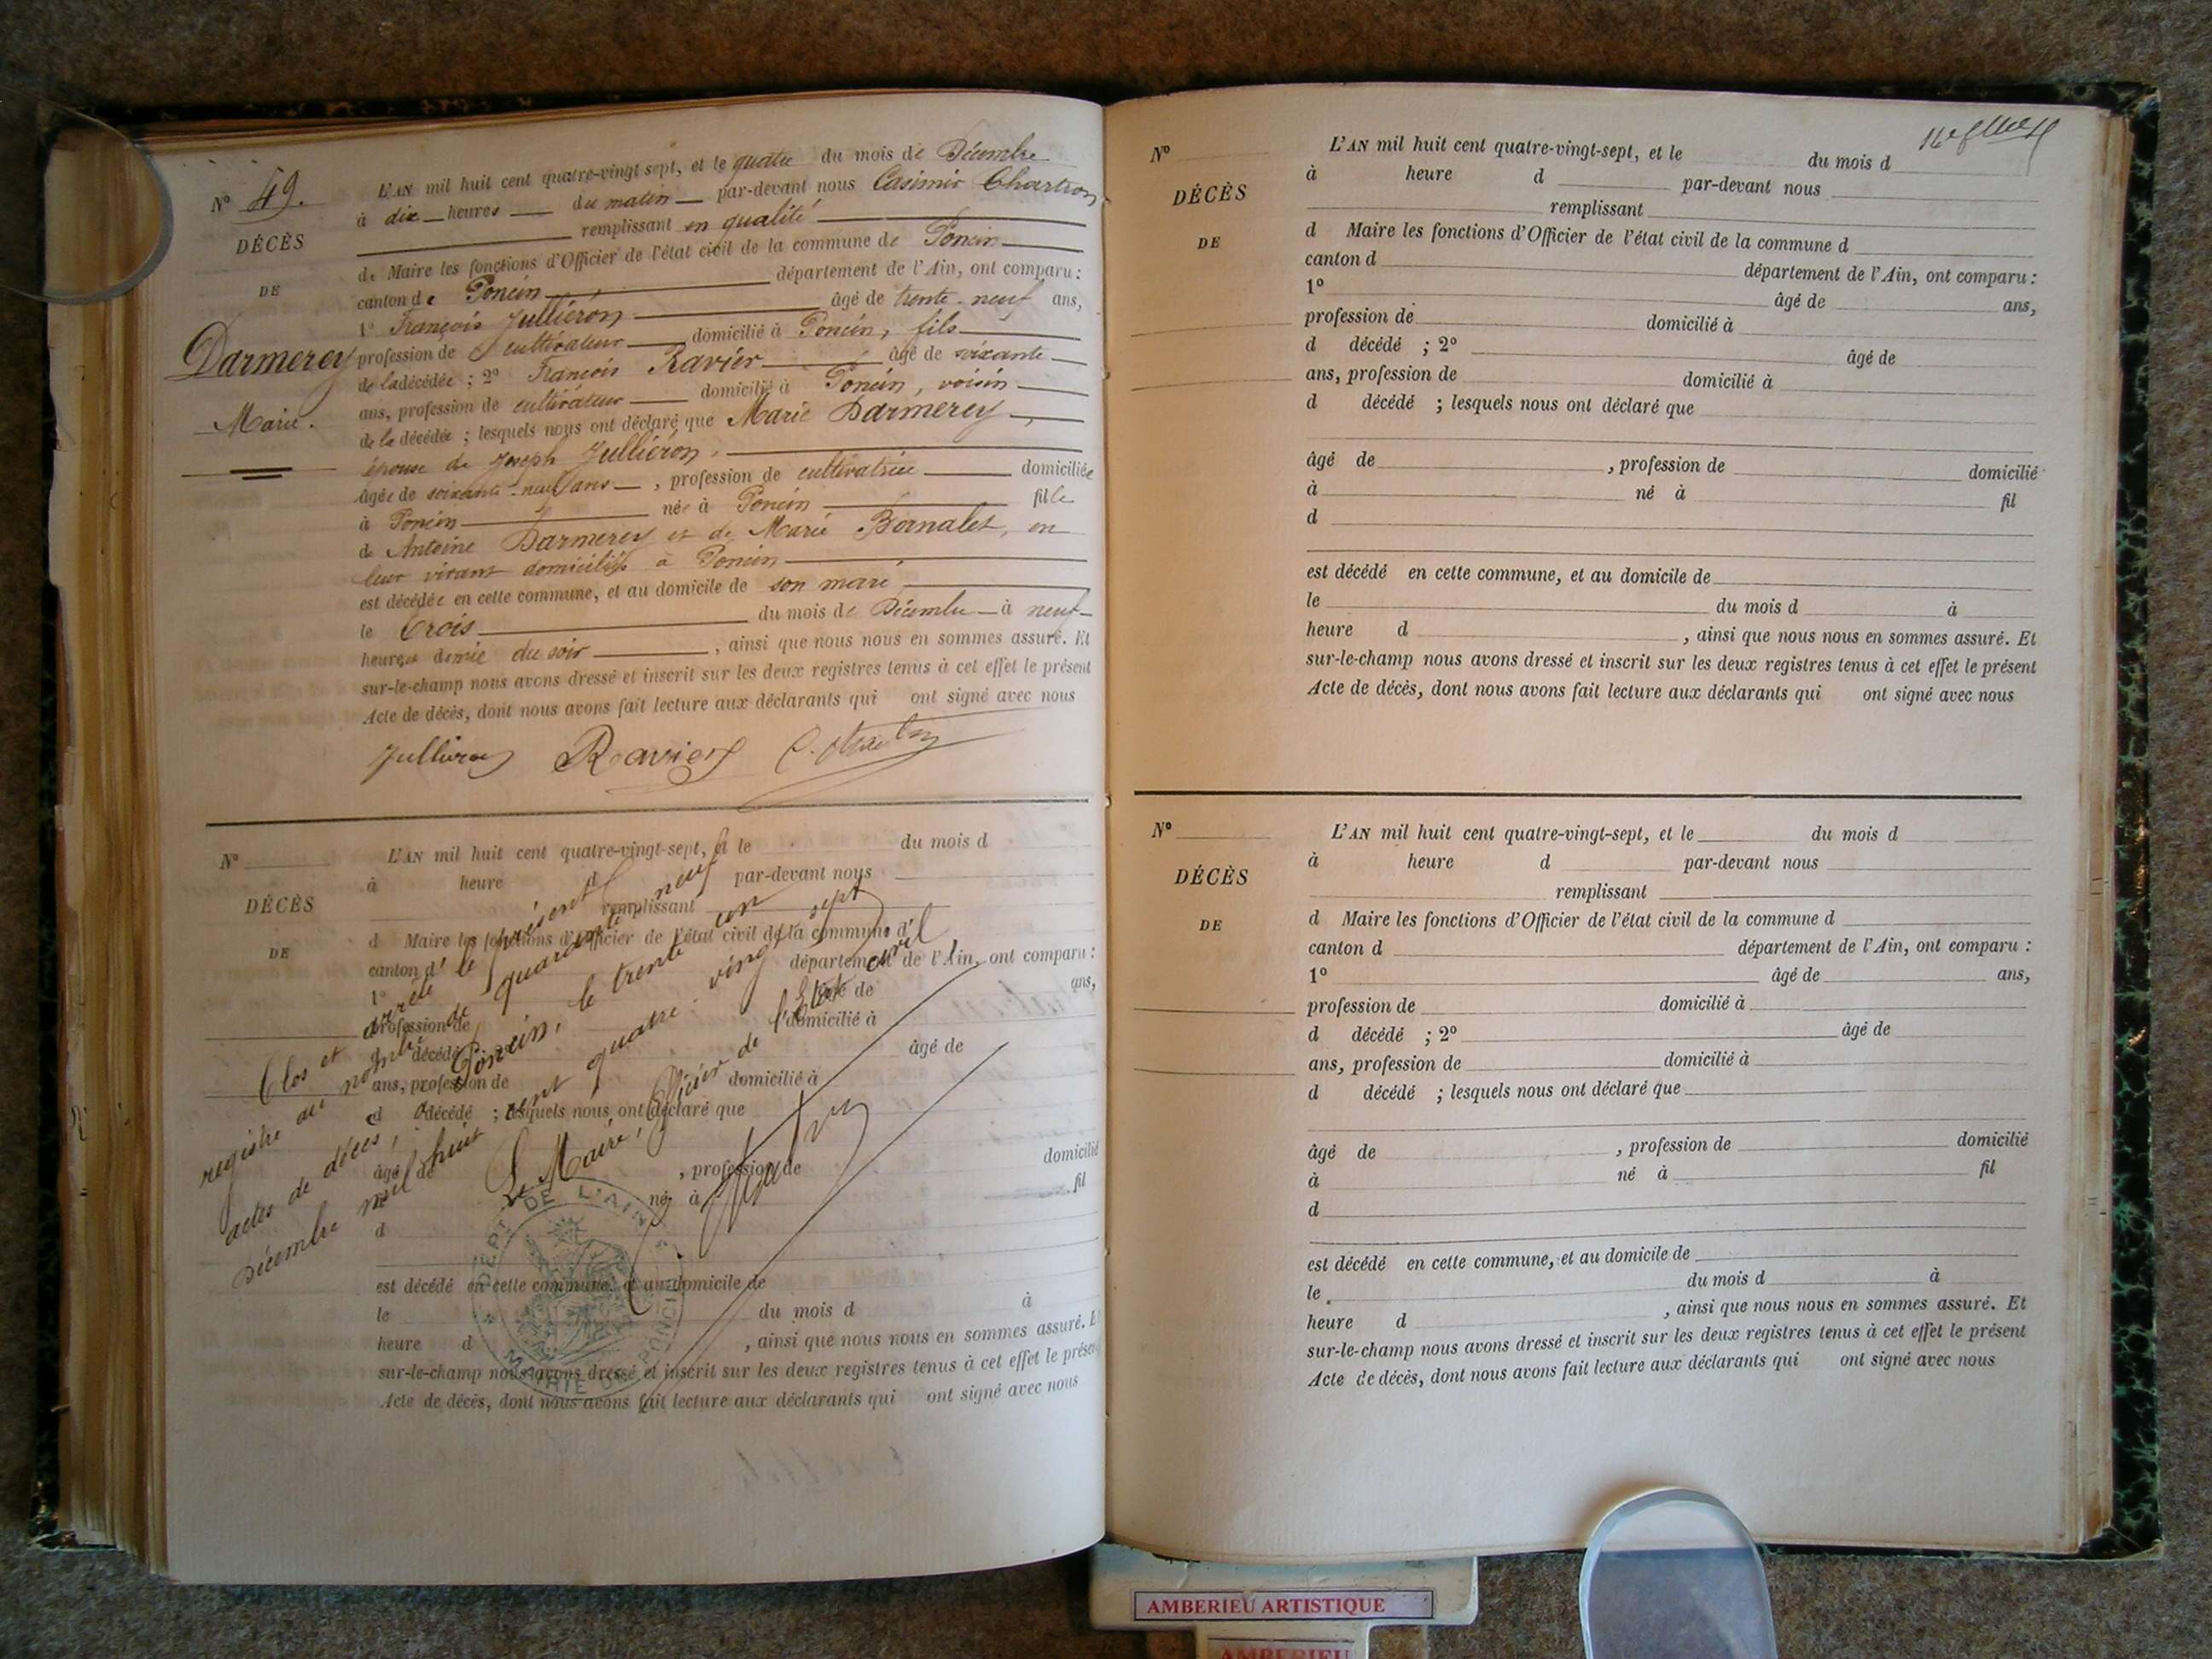 L'AN mil huit cent quatre-vingt-sept, et le quatre du mois de Décembre
N° 49.
à dix heures du matin par-devant nous Casimir Chartron
remplissant en qualité
DÉCÈS
de Maire les fonctions d'Officier de l'état civil de la commune de Poncin
DE
canton de Poncin département de l'Ain, ont comparu :
1° François Jullièron âgé de trente-neuf ans,
Darmerey
profession de cultivateur domicilié à Poncin, fils
de la décédée ; 2° François Ravier âgé de soixante
ans, profession de cultivateur domicilié à Poncin, voisin
Marie.
de la décédée ; lesquels nous ont déclaré que Marie Darmerey,
épouse de Joseph Jullièron,
âgée de soixante-neuf ans, profession de cultivatrice domiciliée
à Poncin née à Poncin fille
de Antoine Darmerey et de Marie Bornalet, en
leur vivant domiciliés à Poncin
est décédée en cette commune, et au domicile de son mari
le trois du mois de Décembre à neuf
heures et demie du soir, ainsi que nous nous en sommes assuré. Et
sur-le-champ nous avons dressé et inscrit sur les deux registres tenus à cet effet le présent
Acte de décès, dont nous avons fait lecture aux déclarants qui ont signé avec nous
Jullieron Ravier
N°
L'AN mil huit cent quatre-vingt-sept, et le du mois d
à heure d par-devant nous
DÉCÈS
remplissant
DE
d Maire les fonctions d'Officier de l'état civil de la commune d
canton d département de l'Ain, ont comparu :
1° âgé de ans,
profession de domicilié à
d décédé ; 2° âgé de
ans, profession de domicilié à
d décédé ; lesquels nous ont déclaré que
âgé de , profession de domicilié
à né à fil
d
est décédé en cette commune, et au domicile de
le du mois d à
heure d , ainsi que nous nous en sommes assuré. E
sur-le-champ nous avons dressé et inscrit sur les deux registres tenus à cet effet le présen
Acte de décès, dont nous avons fait lecture aux déclarants qui ont signé avec nous
Clos et arrêté le présent
registre au nombre de quarante neuf
actes de décès, à Poncin, le trente un
Décembre mil huit cent quatre vingt sept
Le Maire, Officier de l'Etat civil
DEPT DE L'AIN
MAIRIE DE PONCIN
N°
L'AN mil huit cent quatre-vingt-sept, et le du mois d
à heure d par-devant nous
DÉCÈS
remplissant
DE
d Maire les fonctions d'Officier de l'état civil de la commune d
canton d département de l'Ain, ont comparu :
1° âgé de ans,
profession de domicilié à
d décédé ; 2° âgé de
ans, profession de domicilié à
d décédé ; lesquels nous ont déclaré que
âgé de , profession de domicilié
à né à fil
d
est décédé en cette commune, et au domicile de
le du mois d à
heure d , ainsi que nous nous en sommes assuré. Et
sur-le-champ nous avons dressé et inscrit sur les deux registres tenus à cet effet le présent
Acte de décès, dont nous avons fait lecture aux déclarants qui ont signé avec nous
N°
L'AN mil huit cent quatre-vingt-sept, et le du mois d
à heure d par-devant nous
DÉCÈS
remplissant
DE
d Maire les fonctions d'Officier de l'état civil de la commune d
canton d département de l'Ain, ont comparu :
1° âgé de ans,
profession de domicilié à
d décédé ; 2° âgé de
ans, profession de domicilié à
d décédé ; lesquels nous ont déclaré que
âgé de , profession de domicilié
à né à fil
d
est décédé en cette commune, et au domicile de
le du mois d à
heure d , ainsi que nous nous en sommes assuré. Et
sur-le-champ nous avons dressé et inscrit sur les deux registres tenus à cet effet le présent
Acte de décès, dont nous avons fait lecture aux déclarants qui ont signé avec nous
AMBERIEU ARTISTIQUE
AMBERIEU